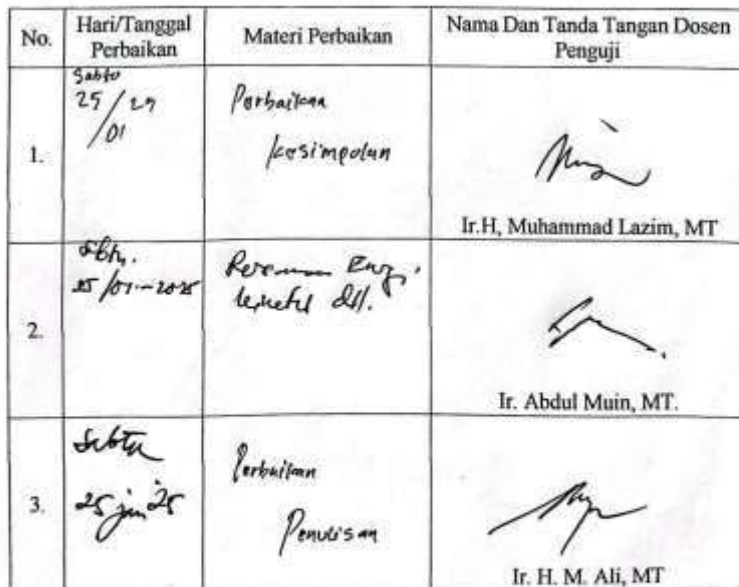 No. Hari/Tanggal Perbaikan Materi Perbaikan Nama Dan Tanda Tangan Dosen Penguji
1.
Sabtu
25/25
/01
Perbaikan
kesimpulan
Ir.H, Muhammad Lazim, MT
2.
Sbtu.
25/01-2025
dll.
Ir. Abdul Muin, MT.
3.
Sabtu
25 jan 25
Perbaikan
Penulisan
Ir. H. M. Ali, MT